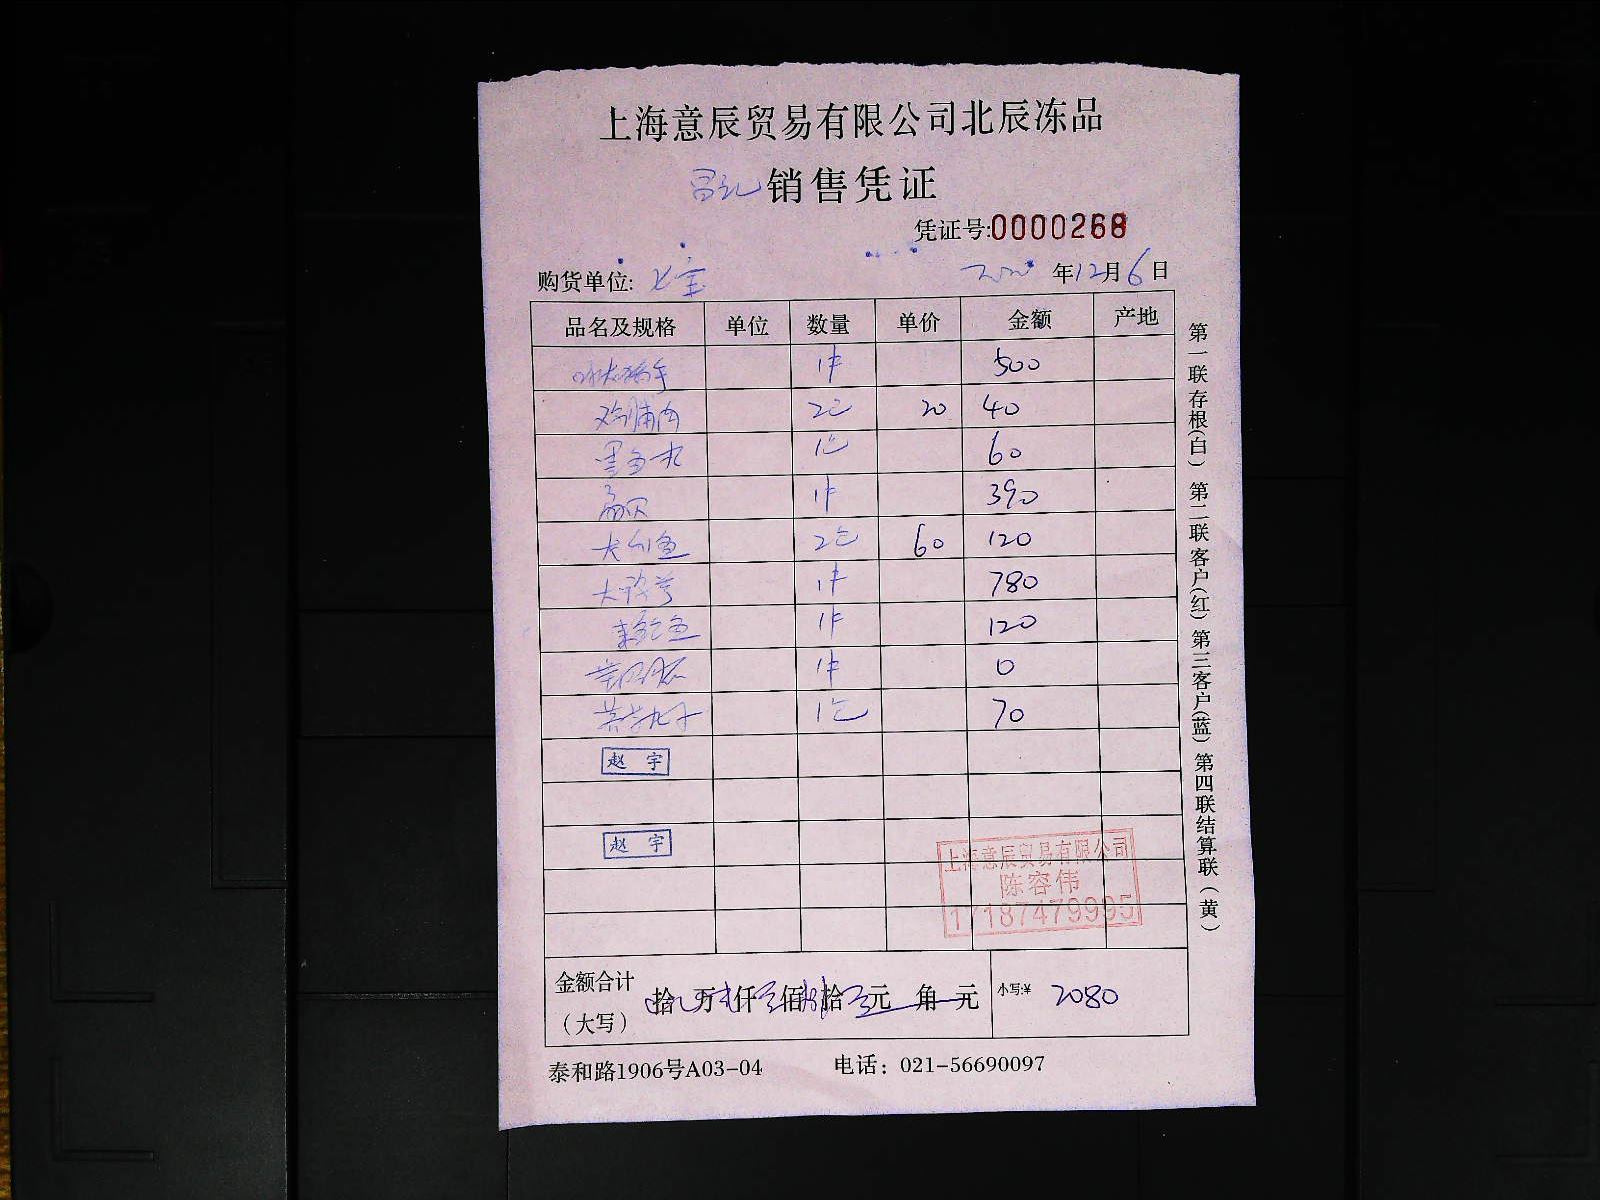 上海意辰贸易有限公司北辰冻品
销售凭证
凭证号:0000268
购货单位: 年12月6日
品名及规格 单位 数量 单价 金额 产地
1件 500
鸡脯肉 2包 20 40
墨鱼丸 1包 60
扇贝 1件 390
2包 60 120
1件 780
1件 120
1件 0
1包 70
赵宇
赵宇
上海意辰贸易有限公司
陈容伟
17187479995
金额合计(大写) 拾 万 仟 佰 拾 元 角 元 小写:¥ 2080
泰和路1906号A03-04 电话: 021-56690097
第一联存根(白) 第二联客户(红) 第三客户(蓝) 第四联结算联(黄)